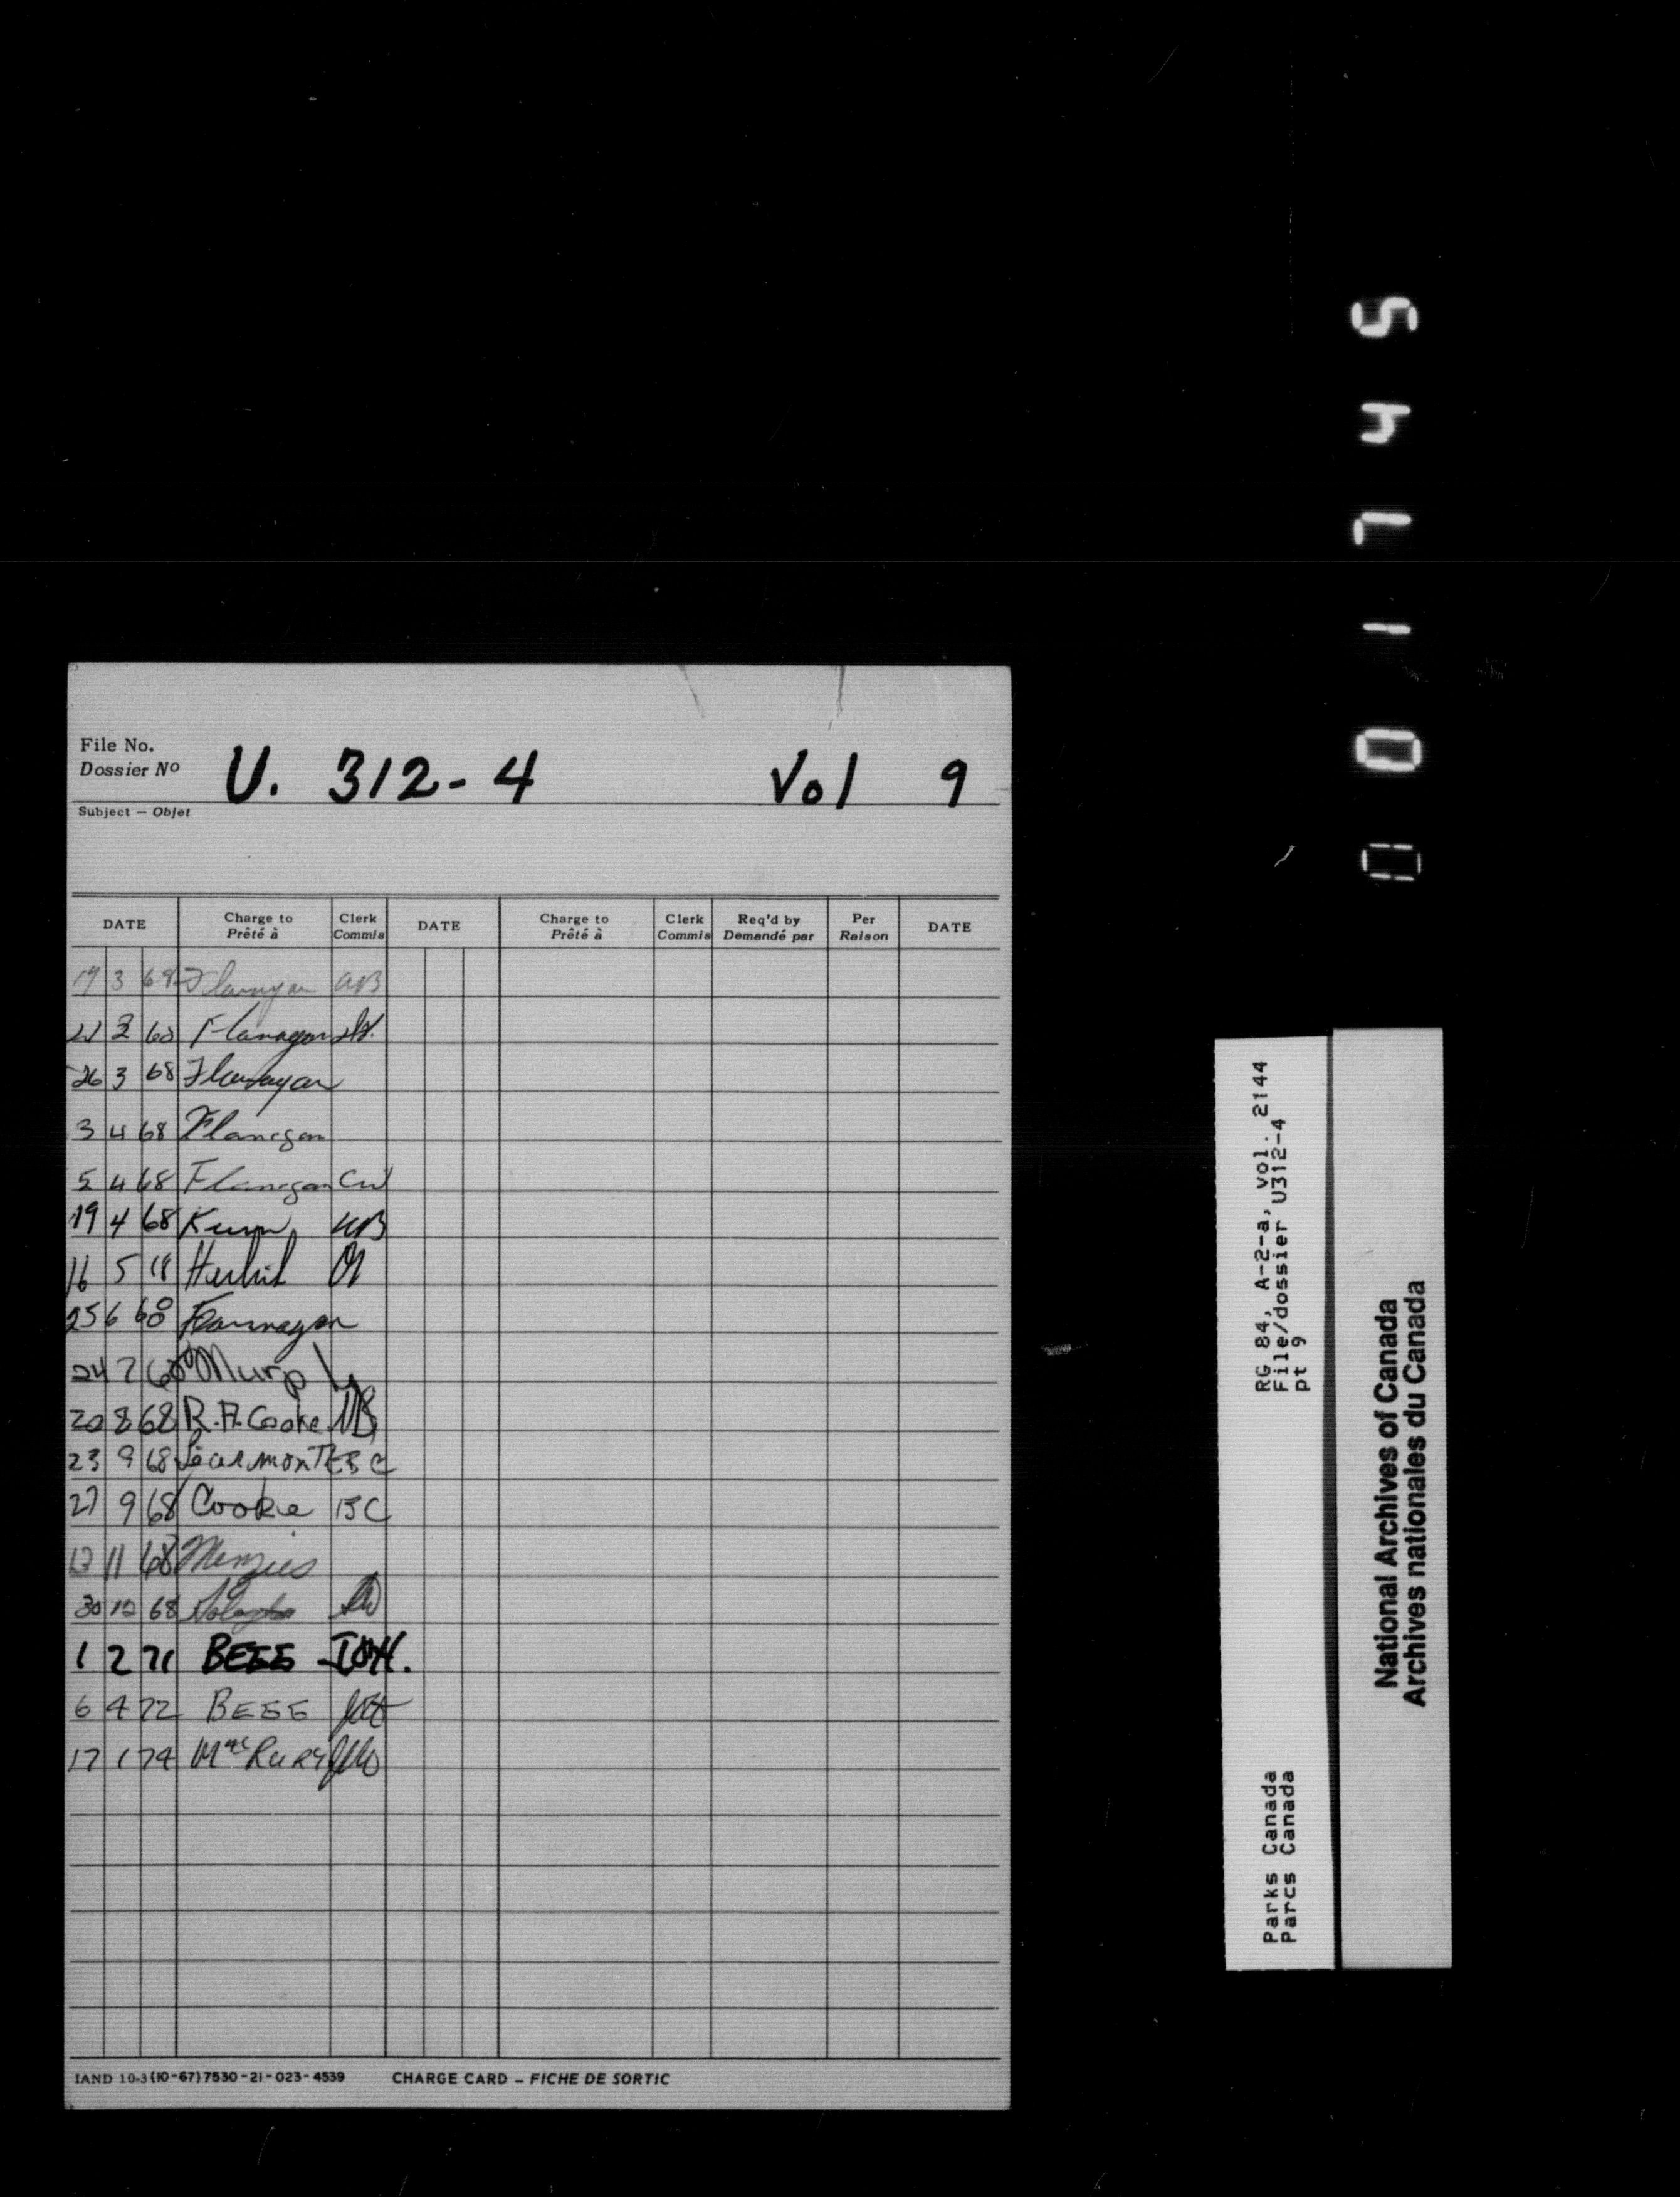 File No.
Dossier Nº U. 312-4 Vol 9
Subject — Objet
DATE Charge to Prêté à Clerk Commis DATE Charge to Prêté à Clerk Commis Req'd by Demandé par Per Raison DATE
3 Flanagan
3 68 Flanagan
26 3 68 Flanagan
3 4 68 Flanegan
5 4 68 Flanegan CW
19 4 68
16 5
25 6 68 Flannagan
24 7 68 Murp
20 8 68 R.A. Cooke
23 9 68 Learmont BC
27 9 68 Cooke BC
13 11 68 Menzies
30 12 68
1 2 71 BEEE
6 4 72 BEEE
17 1 74 MacRury
IAND 10-3 (10-67) 7530-21-023-4539 CHARGE CARD – FICHE DE SORTIC
Parks Canada RG 84, A-2-a, vol. 2144
Parcs Canada File/dossier U312-4
pt 9
National Archives of Canada
Archives nationales du Canada